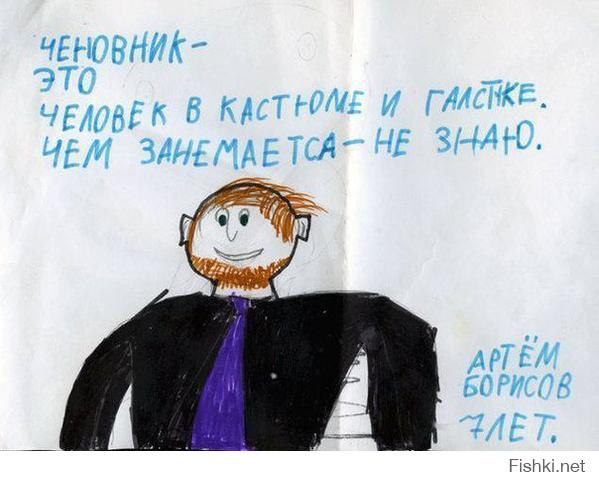 ЧЕНОВНИК-
ЭТО
ЧЕЛОВЕК В КАСТЮМЕ И ГАЛСТКЕ.
ЧЕМ ЗАНЕМАЕТСА-НЕ ЗНАЮ.
АРТЁМ
БОРИСОВ
7 ЛЕТ.
Fishki.net